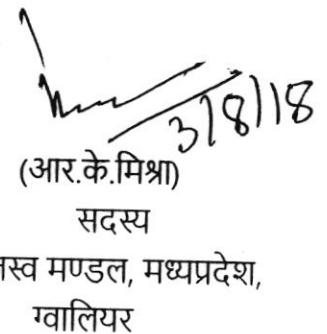 3/8/18
(आर.के.मिश्रा)
सदस्य
मण्डल, मध्यप्रदेश,
ग्वालियर